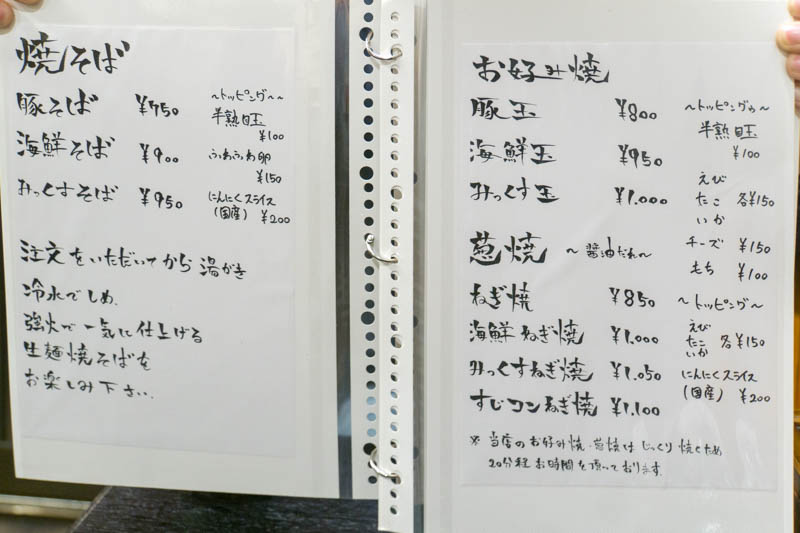 焼そば
豚そば ¥750
海鮮そば ¥900
みっくすそば ¥950
～トッピング～
半熟目玉
¥100
ふわふわ卵
¥150
にんにくスライス
(国産) ¥200
注文をいただいてから湯がき
冷水でしめ、
強火で一気に仕上げる
生麺焼そばを
お楽しみ下さい.
お好み焼
豚玉 ¥800
海鮮玉 ¥950
みっくす玉 ¥1.000
～トッピング～
半熟目玉
¥100
えび
たこ 各¥150
いか
チーズ ¥150
もち ¥100
葱焼 ～醤油だれ～
ねぎ焼 ¥850
海鮮ねぎ焼 ¥1.000
みっくすねぎ焼 ¥1.050
すじコンねぎ焼 ¥1.100
～トッピング～
えび
たこ 各¥150
いか
にんにくスライス
(国産) ¥200
※ 当店のお好み焼・葱焼はじっくり焼くため
20分程お時間を頂っております.